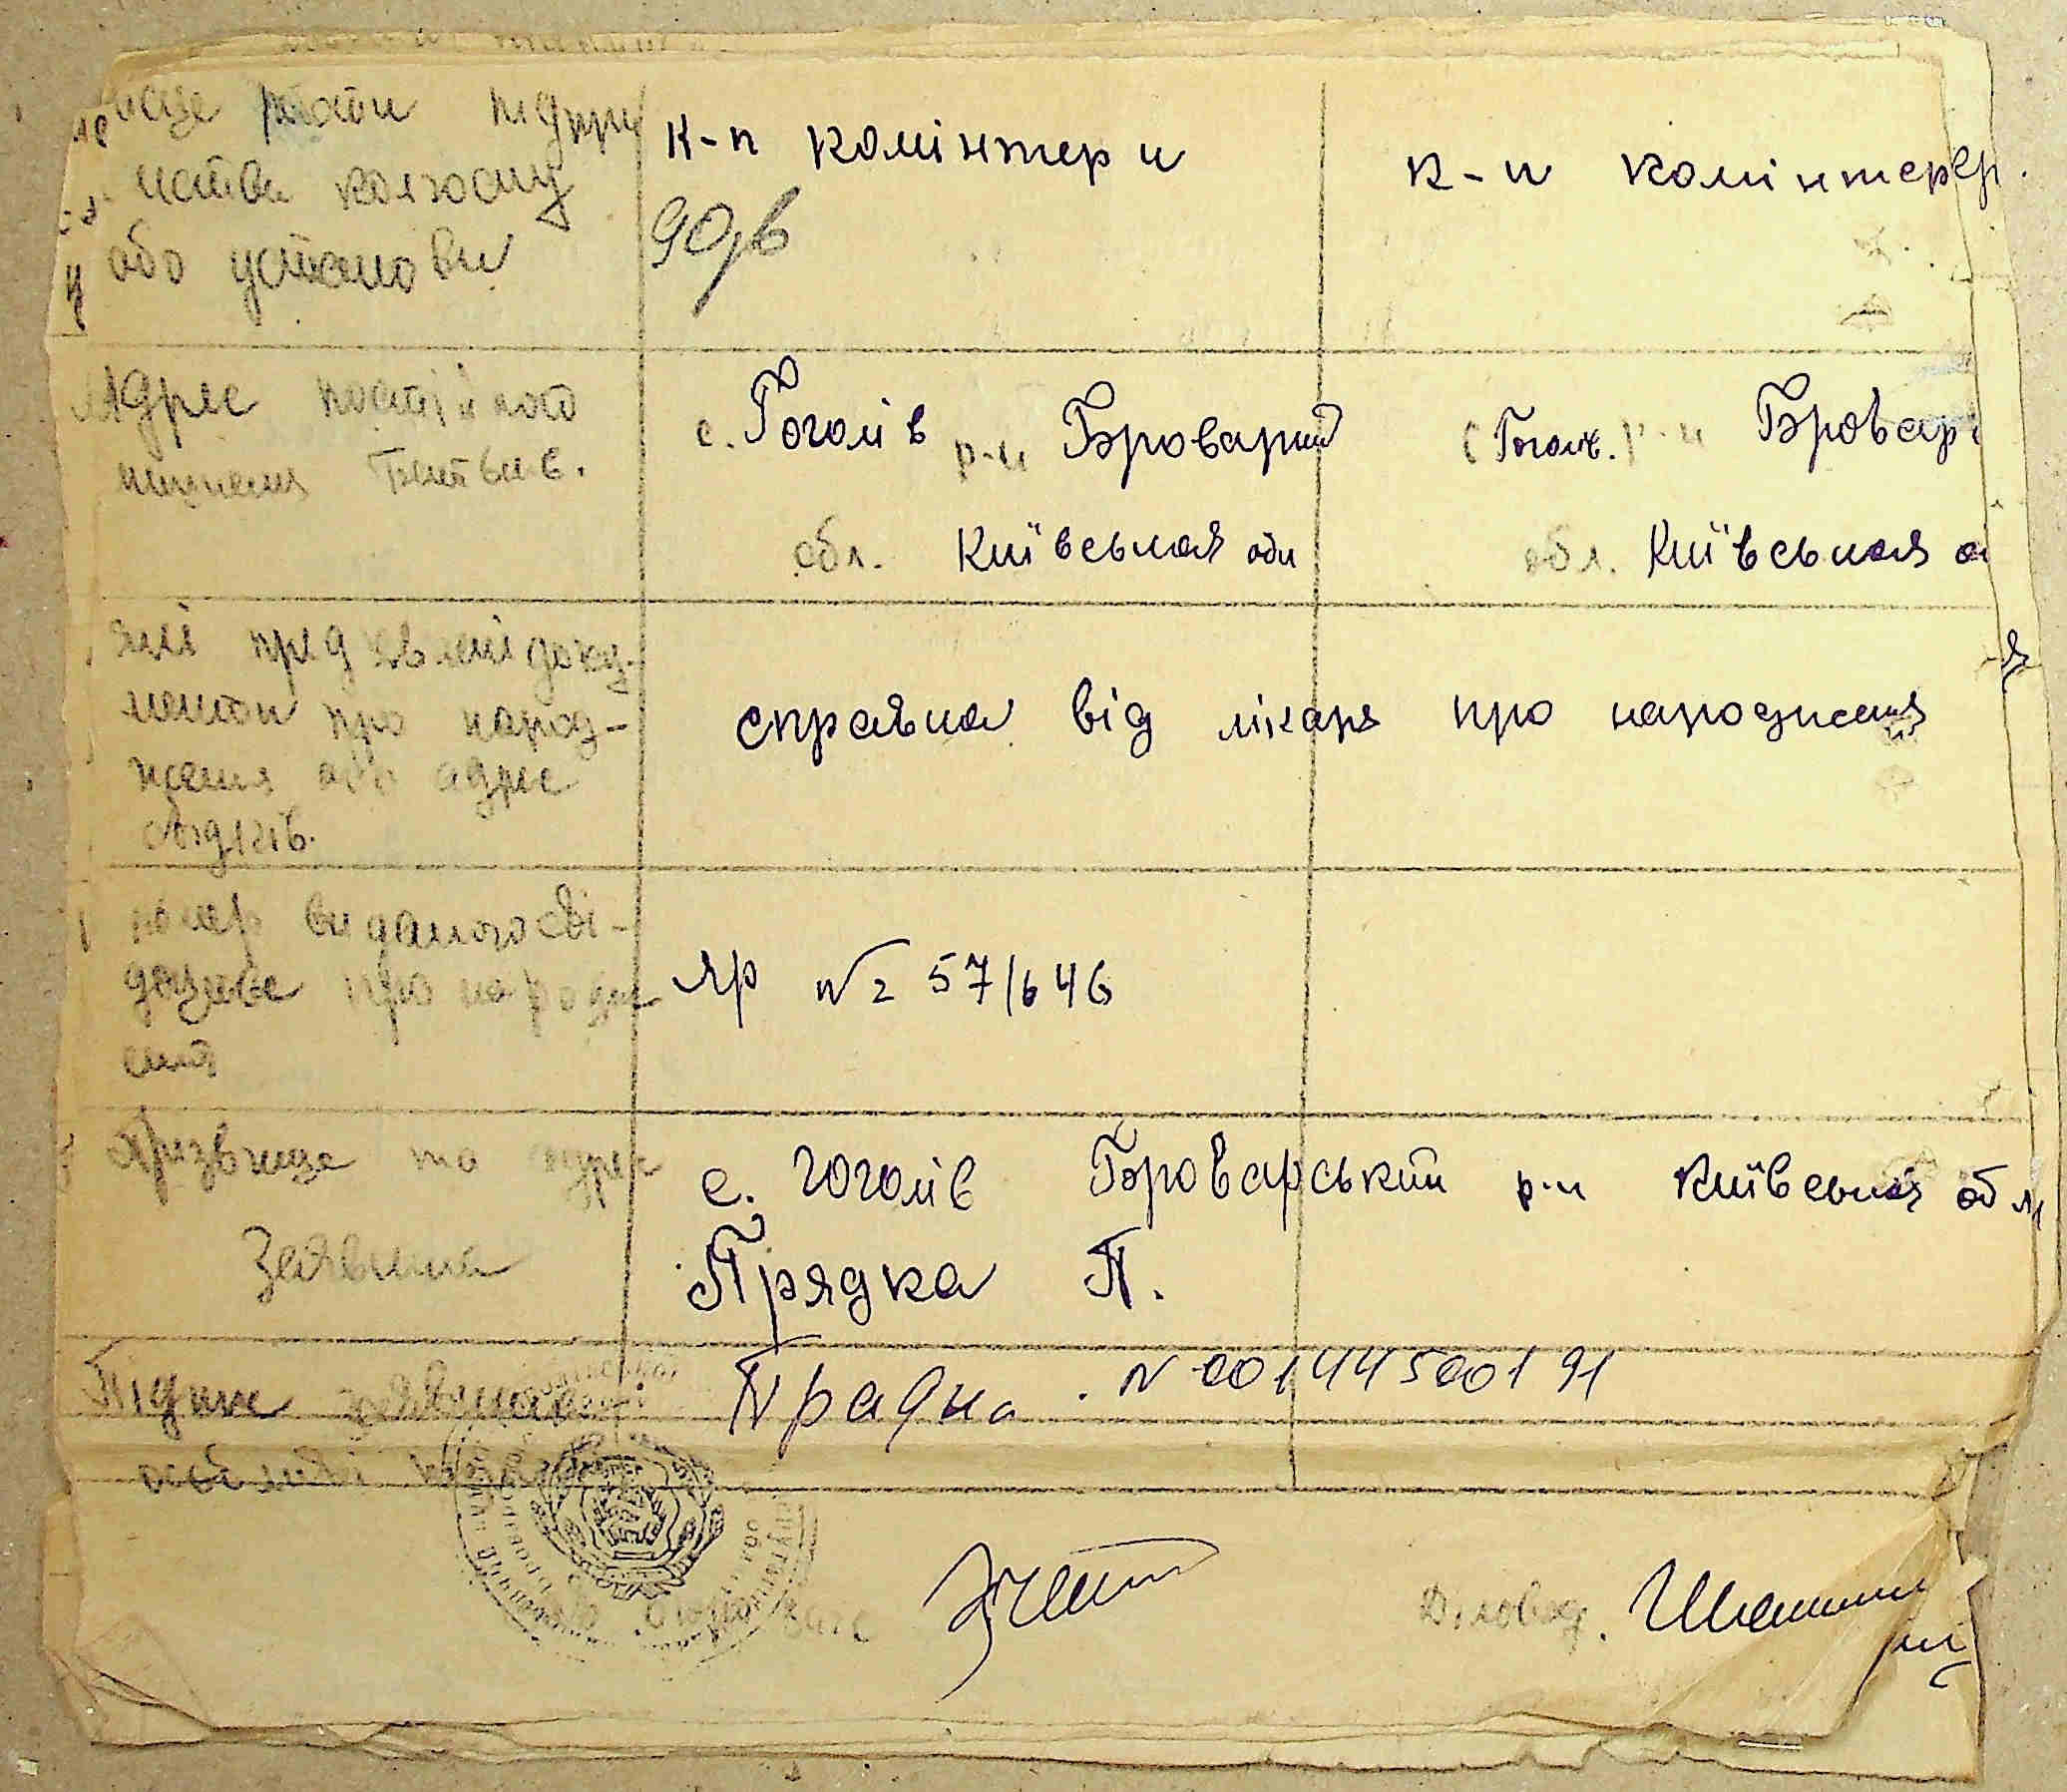 місце роботи підпри
ємства колгоспу
або установи
к-п комінтерн
90/в
к-п комінтер
Адрес постійного
життя батьків.
с. Гоголів р-н Броварий
обл. Київськая обл
с Гогол. р-н Бровар
обл. Київськая о
які пред'явлені доку-
менти про народ-
ження або адрес
свідків.
справка від лікаря про народження
номер виданого сві-
доцтва про народж
ення
ЯР № 57/646
Прізвище та адрес
Заявника
с. Гоголів Броварський р-н Київська обл
Прядка П.
Підпис заявника
Прадка. N 00144500191
Діловод.